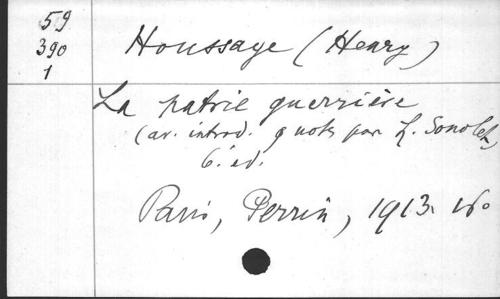 59
390
1
Houssaye (Henry)
La patrie guerrière
(av. introd. & nots par L. Sonolet)
6. éd.
Paris, Perrin, 1913. 16°